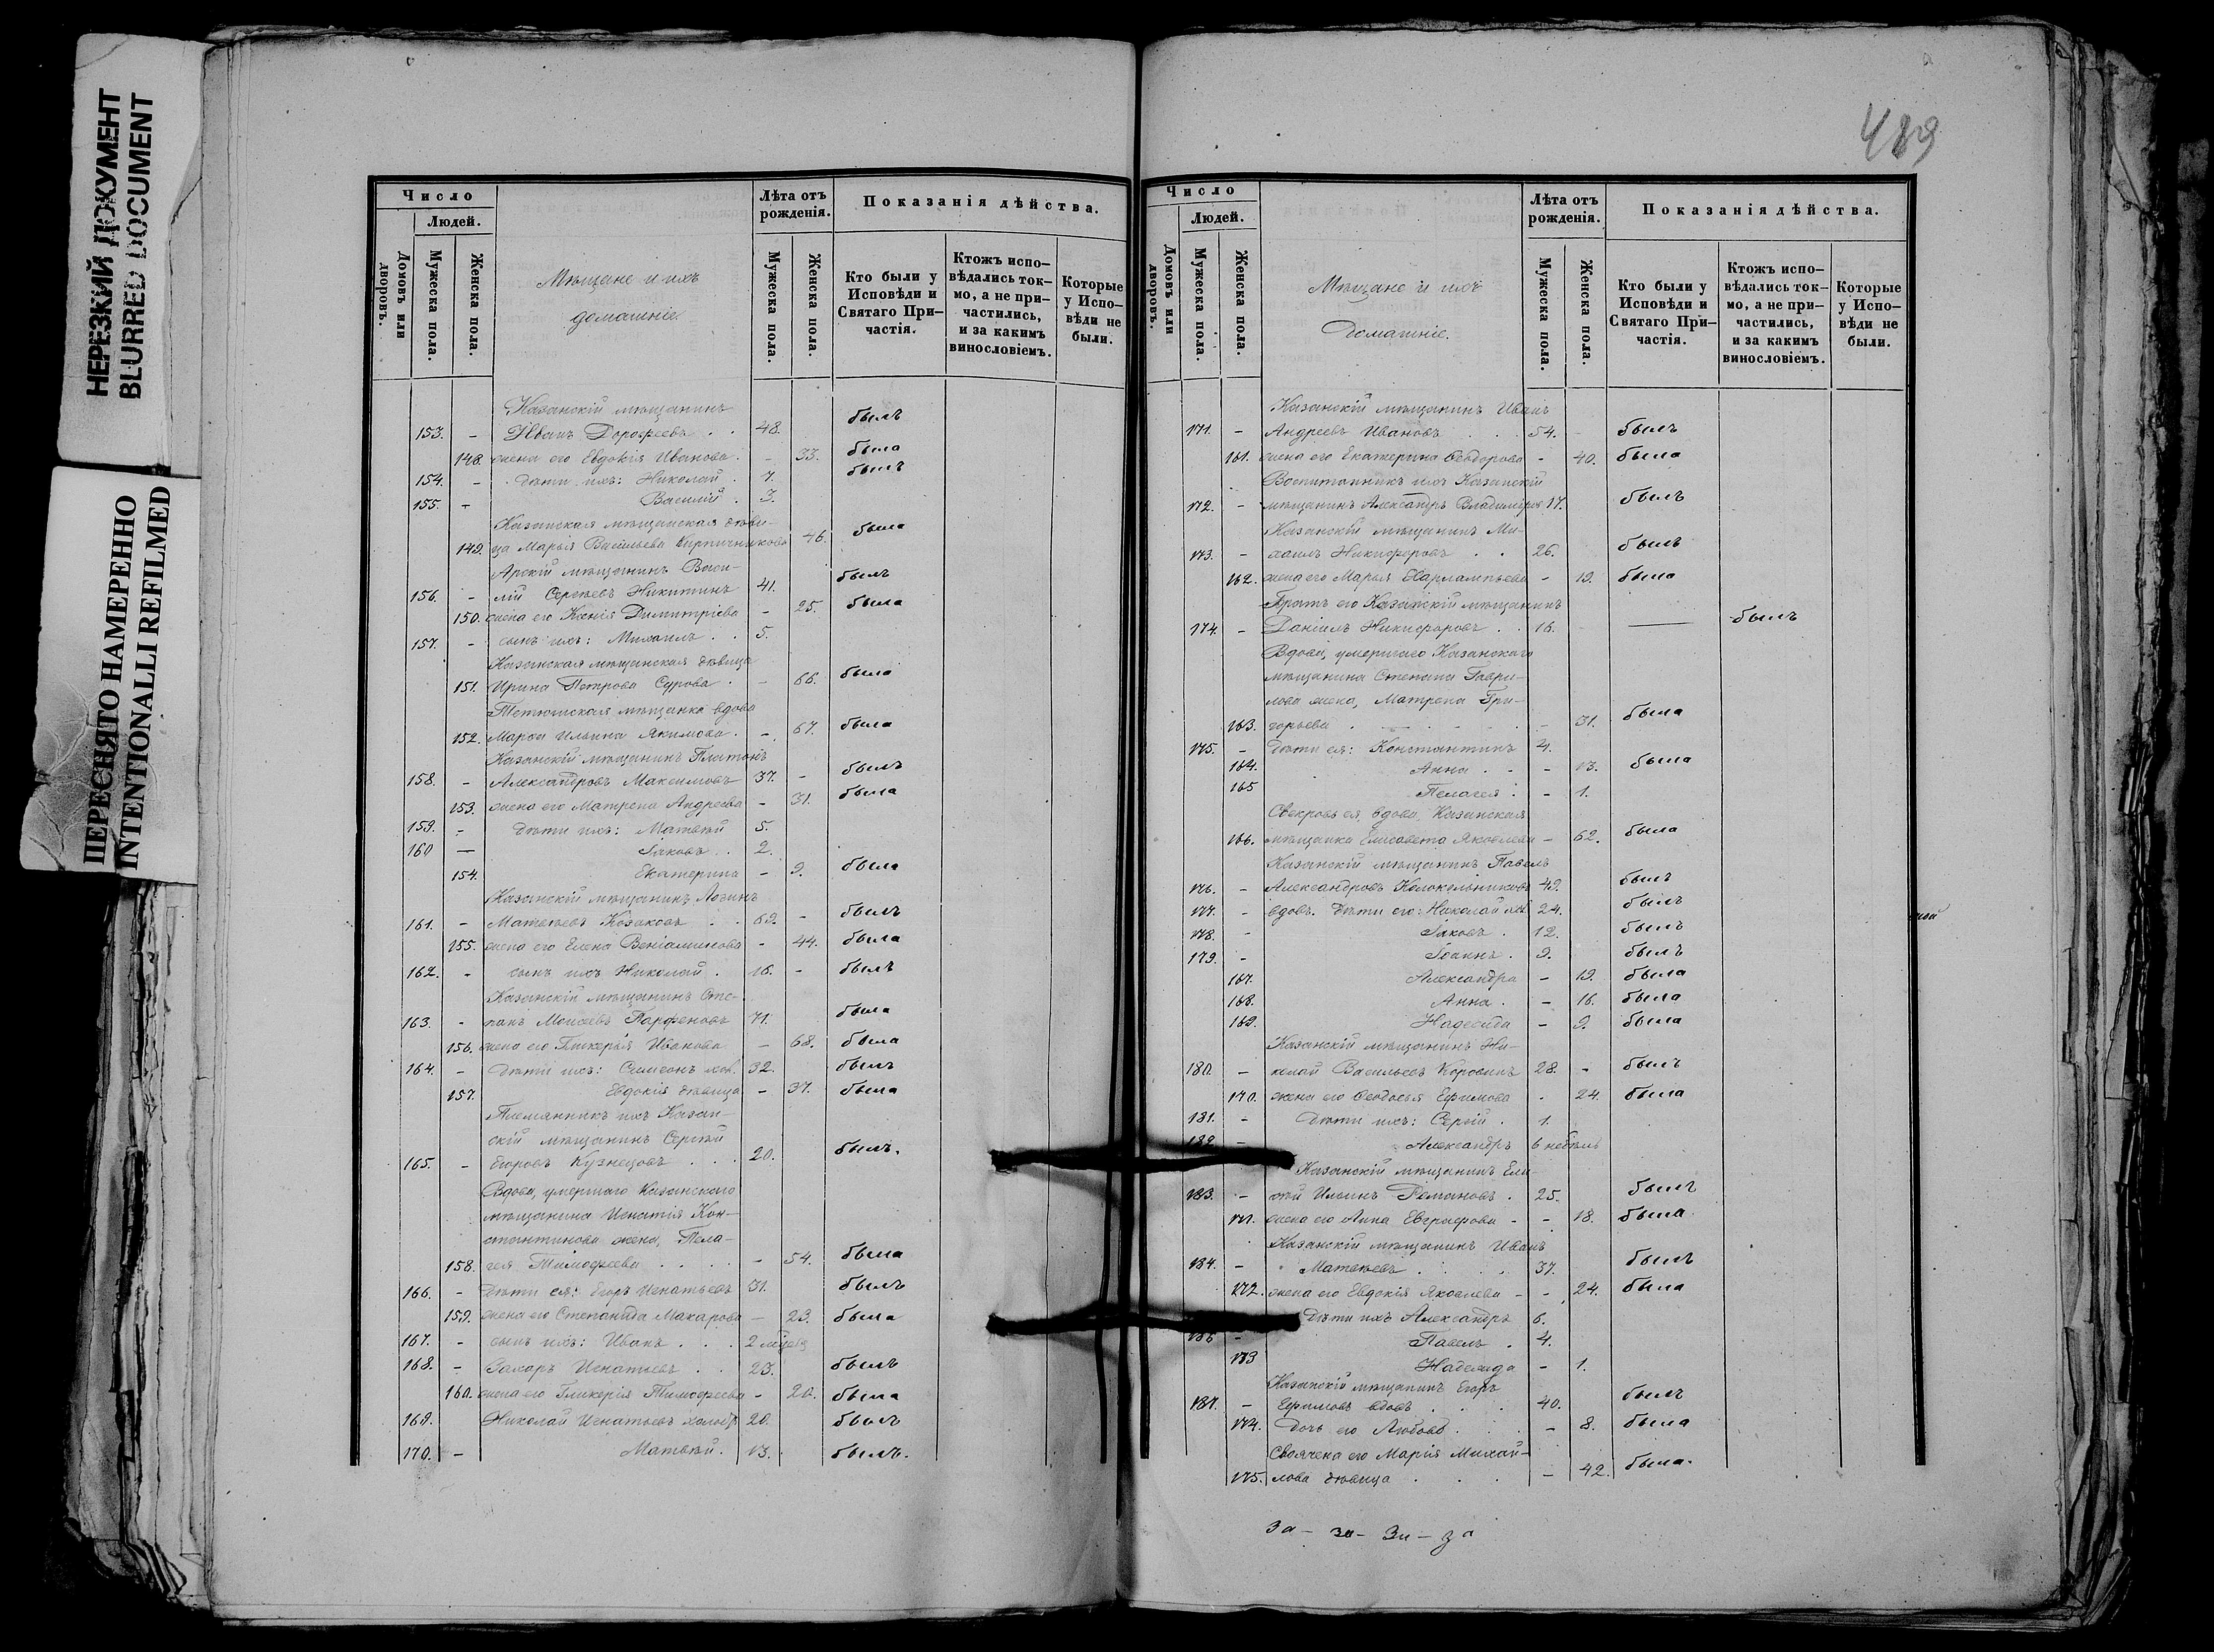 НЕРЕЗКИЙ ДОКУМЕНТ
BLURRED DOCUMENT
ПЕРЕСНЯТО НАМЕРЕННО
INTENTIONALLI REFILMED
Число
Людей.
Домовъ или дворовъ.
Мужеска пола.
Женска пола.
Мѣщане и ихъ
домашніе.
Лѣта отъ рожденія.
Мужеска пола.
Женска пола.
Показанія дѣйства.
Кто были у Исповѣди и Святаго При-частія.
Ктожъ испо-вѣдались ток-мо, а не при-частились, и за какимъ винословіемъ.
Которые у Испо-вѣди не были.
Казанскій мѣщанинъ
153. - Иванъ Дорофеевъ . . 48. былъ
148. жена его Евдокія Иванова. - 33. была
154. - Дѣти ихъ: Николай . 7. былъ
155. - Василій . 3.
Казанская мѣщанская дѣви-
149. ца Марья Васильева Кирпичникова 46. была
Арскій мѣщанинъ Васи-
156. - лій Сергѣевъ Никитинъ 41. былъ
150. жена его Ксенія Димитріева - 25. была
157. - сынъ ихъ: Михаилъ . . 5.
Казанская мѣщанская дѣвица
151. Ирина Петрова Сурова . - 66. была
Тетюшская мѣщанка вдова
152. Марѳа Ильина Якимова . - 67. была
Казанскій мѣщанинъ Платонъ
158. - Александровъ Максимовъ 37. - былъ
153. жена его Матрена Андреева - 31. была
159. - Дѣти ихъ: Матвѣй 5.
160 — Іаковъ . 2.
154. Екатерина - 9. была
Казанскій мѣщанинъ Логинъ
161. - Матвѣевъ Козаковъ . . 69. - былъ
155. жена его Елена Веніаминова - 44. была
162. - сынъ ихъ Николай . 16. - былъ
Казанскій мѣщанинъ Сте-
163. - панъ Моисеевъ Парфеновъ 71. была
156. жена его Гликерья Иванова - 68. была
164. - Дѣти ихъ: Симеонъ хол. 32. былъ
157. Евдокія дѣвица - 37. была
Племянникъ ихъ Казан-
скій мѣщанинъ Сергѣй
165. - Егоровъ Кузнецовъ . . . 20. былъ.
Вдова, умершаго Казанскаго
мѣщанина Игнатія Кон-
стантинова жена, Пела-
158. гея Тимофеева . . . . - 54. была
166. - Дѣти ея: Егоръ Игнатьевъ 31. былъ
159. жена его Степанида Макарова - 23. была
167. - сынъ ихъ: Иванъ . . . 2 мѣсяц
168. - Захаръ Игнатьевъ . . 23. былъ
160. жена его Гликерія Тимофеева - 20. была
169. Николай Игнатьевъ холост. 20. былъ
170. - Матвѣй . 13. былъ.
489
Число
Людей.
Домовъ или дворовъ.
Мужеска пола.
Женска пола.
Мѣщане и ихъ
Домашніе.
Лѣта отъ рожденія.
Мужеска пола.
Женска пола.
Показанія дѣйства.
Кто были у Исповѣди и Святаго При-частія.
Ктожъ испо-вѣдались ток-мо, а не при-частились, и за какимъ винословіемъ.
Которые у Испо-вѣди не были.
Казанскій мѣщанинъ Иванъ
171. - Андреевъ Ивановъ . . . 54. былъ
161. жена его Екатерина Ѳеодорова - 40. была
Воспитанникъ ихъ Казанскій
172. - мѣщанинъ Александръ Владиміров 17. былъ
Казанскій мѣщанинъ Ми-
173. - хаилъ Никифоровъ . . 26. былъ
162. жена его Марья Харлампьева - 19. была
Братъ его Казанскій мѣщанинъ
174. - Даніилъ Никифоровъ . . 16. — былъ
Вдова, умершаго Казанскаго
мѣщанина Степана Гаври-
лова жена, Матрена Гри-
163. горьева . - . - . - 31. была
175. - Дѣти ея: Константинъ 4.
164. Анна . - - 13. была
165 Пелагея . - 1.
Свекровь ея, вдова, Казанская
166. мѣщанка Елисавета Яковлева - 62. была
Казанскій мѣщанинъ Павелъ
176. - Александровъ Колокольниковъ 49. былъ
177. - вдовъ. Дѣти его: Николай хол. 24. былъ
178. - Іаковъ . 12. былъ
179. - Іоаннъ . 9. былъ
167. Александра - 19. была
168. Анна . - 16. была
169. Надежда - 9. была
Казанскій мѣщанинъ Ни-
180. - колай Васильевъ Коровинъ 28. - былъ
170. жена его Ѳеодосья Ефимова . 24. была
181. - Дѣти ихъ: Сергій . 1.
182 - Александръ 6 недѣль
Казанскій мѣщанинъ Ели-
183. - сей Ильинъ Романовъ . 25. былъ
171. жена его Анна Евграфова - - 18. была
Казанскій мѣщанинъ Иванъ
184. - Матвѣевъ . . . . 37. былъ
172. жена его Евдокія Яковлева - - 24. была
Дѣти ихъ Александръ 6.
186 - Павелъ . 4.
173 Надежда - 1.
Казанскій мѣщанинъ Егоръ
187. - Ефимовъ вдовъ . . . 40. былъ
174. дочь его Любовь . . . - 8. была
Своячена его Марія Михай-
175. лова дѣвица . . . - 42. была.
за - за - За - за